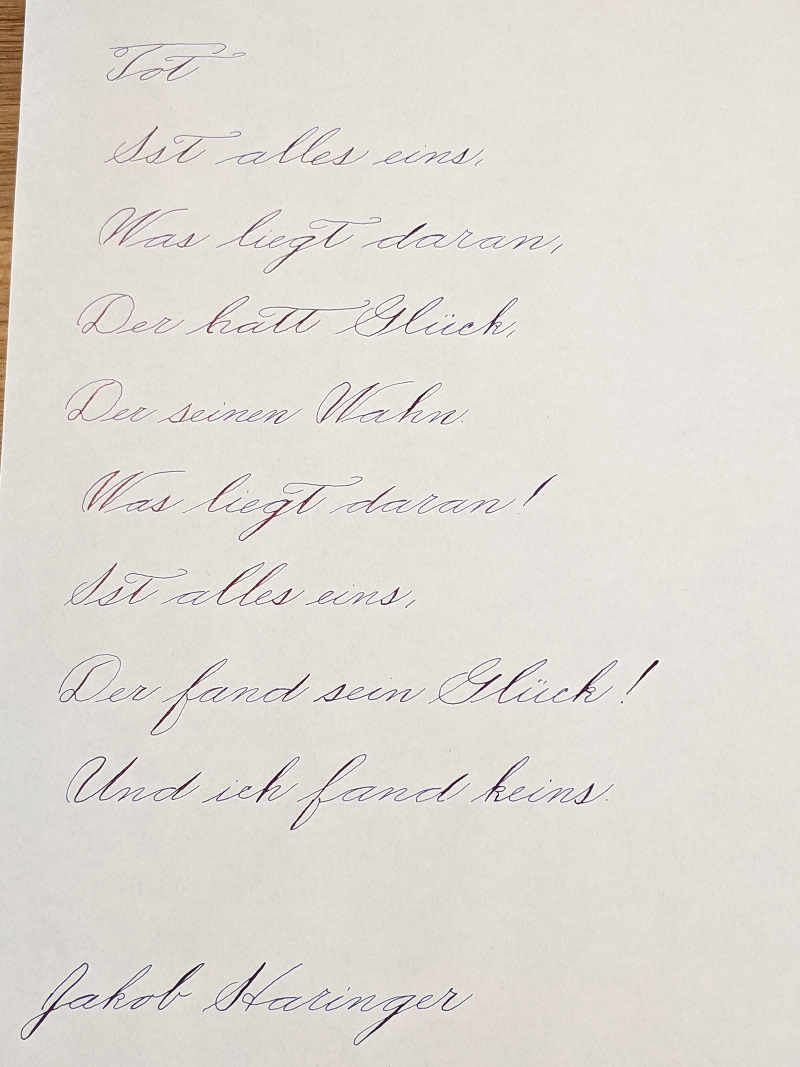 Tot
Ist alles eins,
Was liegt daran,
Der hatt Glück,
Der seinen Wahn.
Was liegt daran!
Ist alles eins,
Der fand sein Glück!
Und ich fand keins.
Jakob Haringer